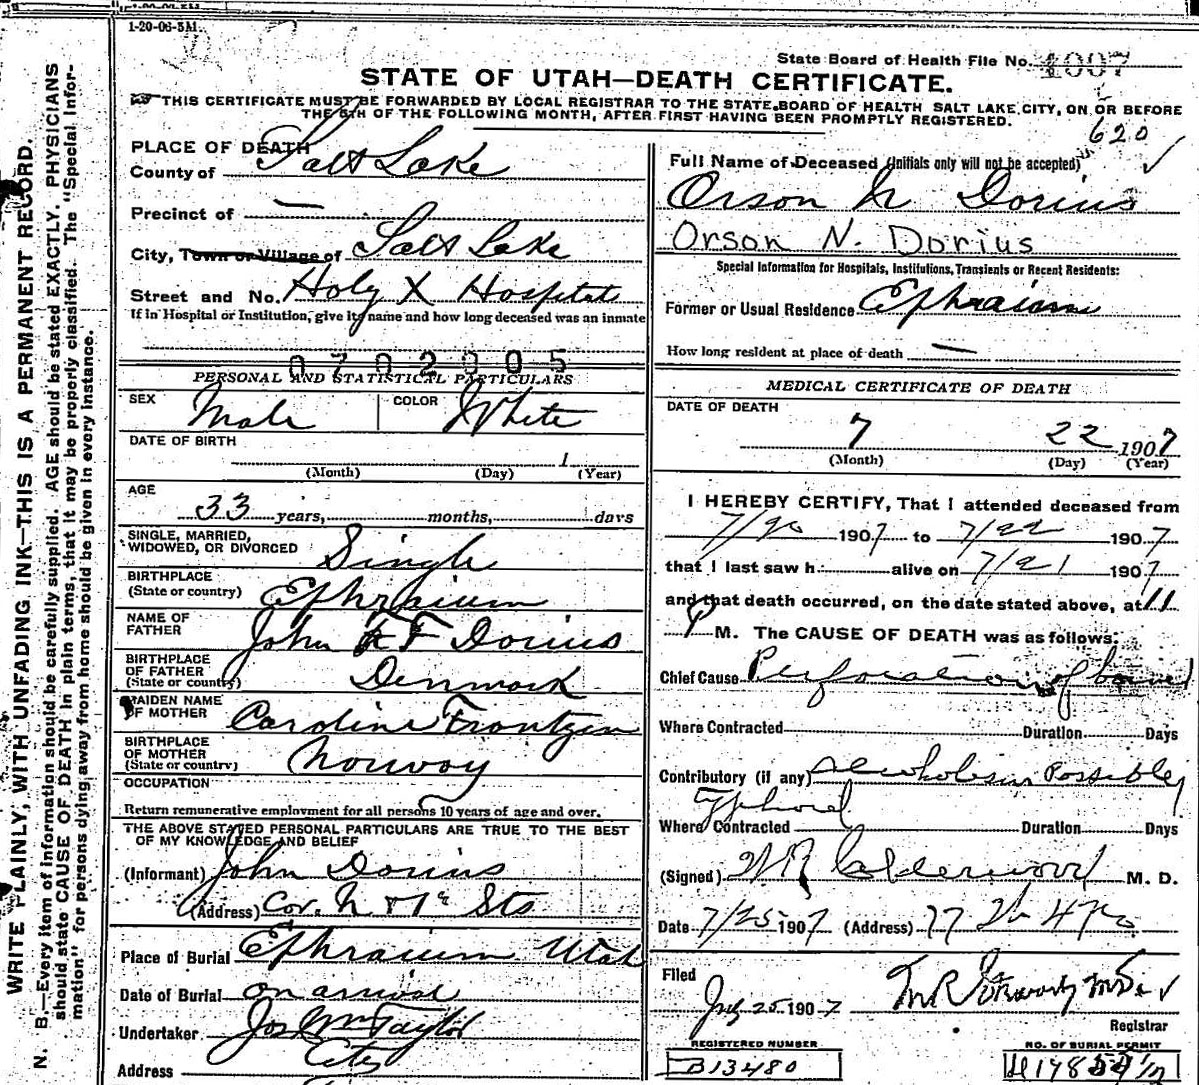 1-20-06-5M.
State Board of Health File No. 1007
STATE OF UTAH—DEATH CERTIFICATE.
THIS CERTIFICATE MUST BE FORWARDED BY LOCAL REGISTRAR TO THE STATE BOARD OF HEALTH SALT LAKE CITY, ON OR BEFORE
THE 5TH OF THE FOLLOWING MONTH, AFTER FIRST HAVING BEEN PROMPTLY REGISTERED.
620
PLACE OF DEATH
County of Salt Lake
Precinct of —
City, Town or Village of Salt Lake
Street and No. Holy X Hospital
If in Hospital or Institution, give its name and how long deceased was an inmate
0702005
PERSONAL AND STATISTICAL PARTICULARS
SEX Male COLOR White
DATE OF BIRTH
1
(Month) (Day) (Year)
AGE
33 years, months, days
SINGLE, MARRIED,
WIDOWED, OR DIVORCED Single
BIRTHPLACE
(State or country) Ephraium
NAME OF
FATHER John F Dorius
BIRTHPLACE
OF FATHER
(State or country) Denmark
MAIDEN NAME
OF MOTHER Caroline Frontzen
BIRTHPLACE
OF MOTHER
(State or country) Norway
OCCUPATION
Return remunerative employment for all persons 10 years of age and over.
THE ABOVE STATED PERSONAL PARTICULARS ARE TRUE TO THE BEST
OF MY KNOWLEDGE AND BELIEF
(Informant) John Dorius
(Address) Cor. Sts
Place of Burial Ephraium Utah
Date of Burial on arrival
Undertaker Jos Wm Taylor
Address City
Full Name of Deceased (Initials only will not be accepted)
Orson N Dorius
Orson N. Dorius
Special Information for Hospitals, Institutions, Transients or Recent Residents:
Former or Usual Residence Ephraiam
How long resident at place of death —
MEDICAL CERTIFICATE OF DEATH
DATE OF DEATH
7 22 1907
(Month) (Day) (Year)
I HEREBY CERTIFY, That I attended deceased from
7/20 1907 to 7/22 1907
that I last saw h alive on 7/21 1907
and that death occurred, on the date stated above, at 11
P M. The CAUSE OF DEATH was as follows:
Chief Cause Perforation of bowel
Where Contracted Duration Days
Contributory (if any) Alcoholism Possibley
Typhoid
Where Contracted Duration Days
(Signed) W R Calderwood M. D.
Date 7/25 1907 (Address) 77
Filed July 25 1907
Registrar
REGISTERED NUMBER
B13480
NO. OF BURIAL PERMIT
WRITE PLAINLY, WITH UNFADING INK—THIS IS A PERMANENT RECORD.
N. B.—Every item of information should be carefully supplied. AGE should be stated EXACTLY. PHYSICIANS
should state CAUSE OF DEATH in plain terms, that it may be properly classified. The "Special Infor-
mation" for persons dying away from home should be given in every instance.